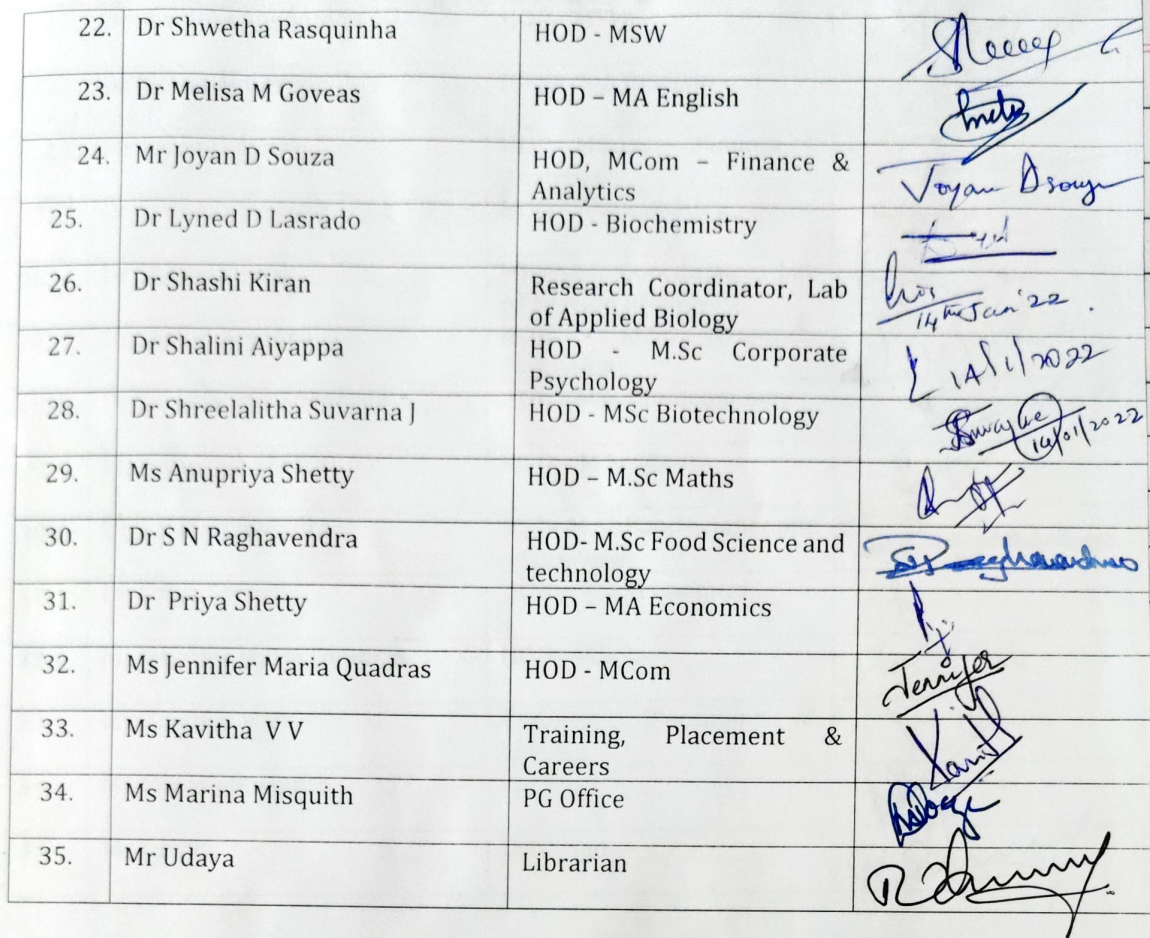 22. Dr Shwetha Rasquinha HOD - MSW
23. Dr Melisa M Goveas HOD – MA English
24. Mr Joyan D Souza HOD, MCom – Finance & Joyan Dsouza
Analytics
25. Dr Lyned D Lasrado HOD - Biochemistry
26. Dr Shashi Kiran Research Coordinator, Lab
of Applied Biology 14th Jan'22
27. Dr Shalini Aiyappa HOD - M.Sc Corporate 14/1/2022
Psychology
28. Dr Shreelalitha Suvarna J HOD - MSc Biotechnology 14/01/2022
29. Ms Anupriya Shetty HOD – M.Sc Maths
30. Dr S N Raghavendra HOD- M.Sc Food Science and
technology
31. Dr Priya Shetty HOD – MA Economics
32. Ms Jennifer Maria Quadras HOD - MCom Jennifer
33. Ms Kavitha V V Training, Placement &
Careers
34. Ms Marina Misquith PG Office
35. Mr Udaya Librarian